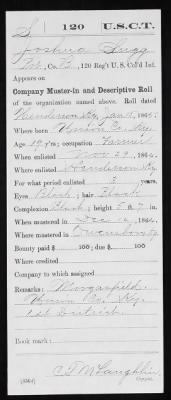 S | 120 | U.S.C.T.
Joshua Sugg
Pvt., Co. B, 120 Reg't U. S. Col'd Inf.
Appears on
Company Muster-in and Descriptive Roll
of the organization named above. Roll dated
Henderson Ky, Jan 1, 1865.
Where born Union Co. Ky.
Age 19 y'rs; occupation Farmer
When enlisted Nov 29, 1864.
Where enlisted Henderson Ky
For what period enlisted 3 years.
Eyes Black; hair Black
Complexion Black; height 5 ft. 7 in.
When mustered in Dec 12, 1864.
Where mustered in Owensboro Ky
Bounty paid $ 100; due $ 100
Where credited
Company to which assigned
Remarks: Morganfield,
Union Co. Ky.
1st District
Book mark:
C. F. McLaughlin
(356d) Copyist.